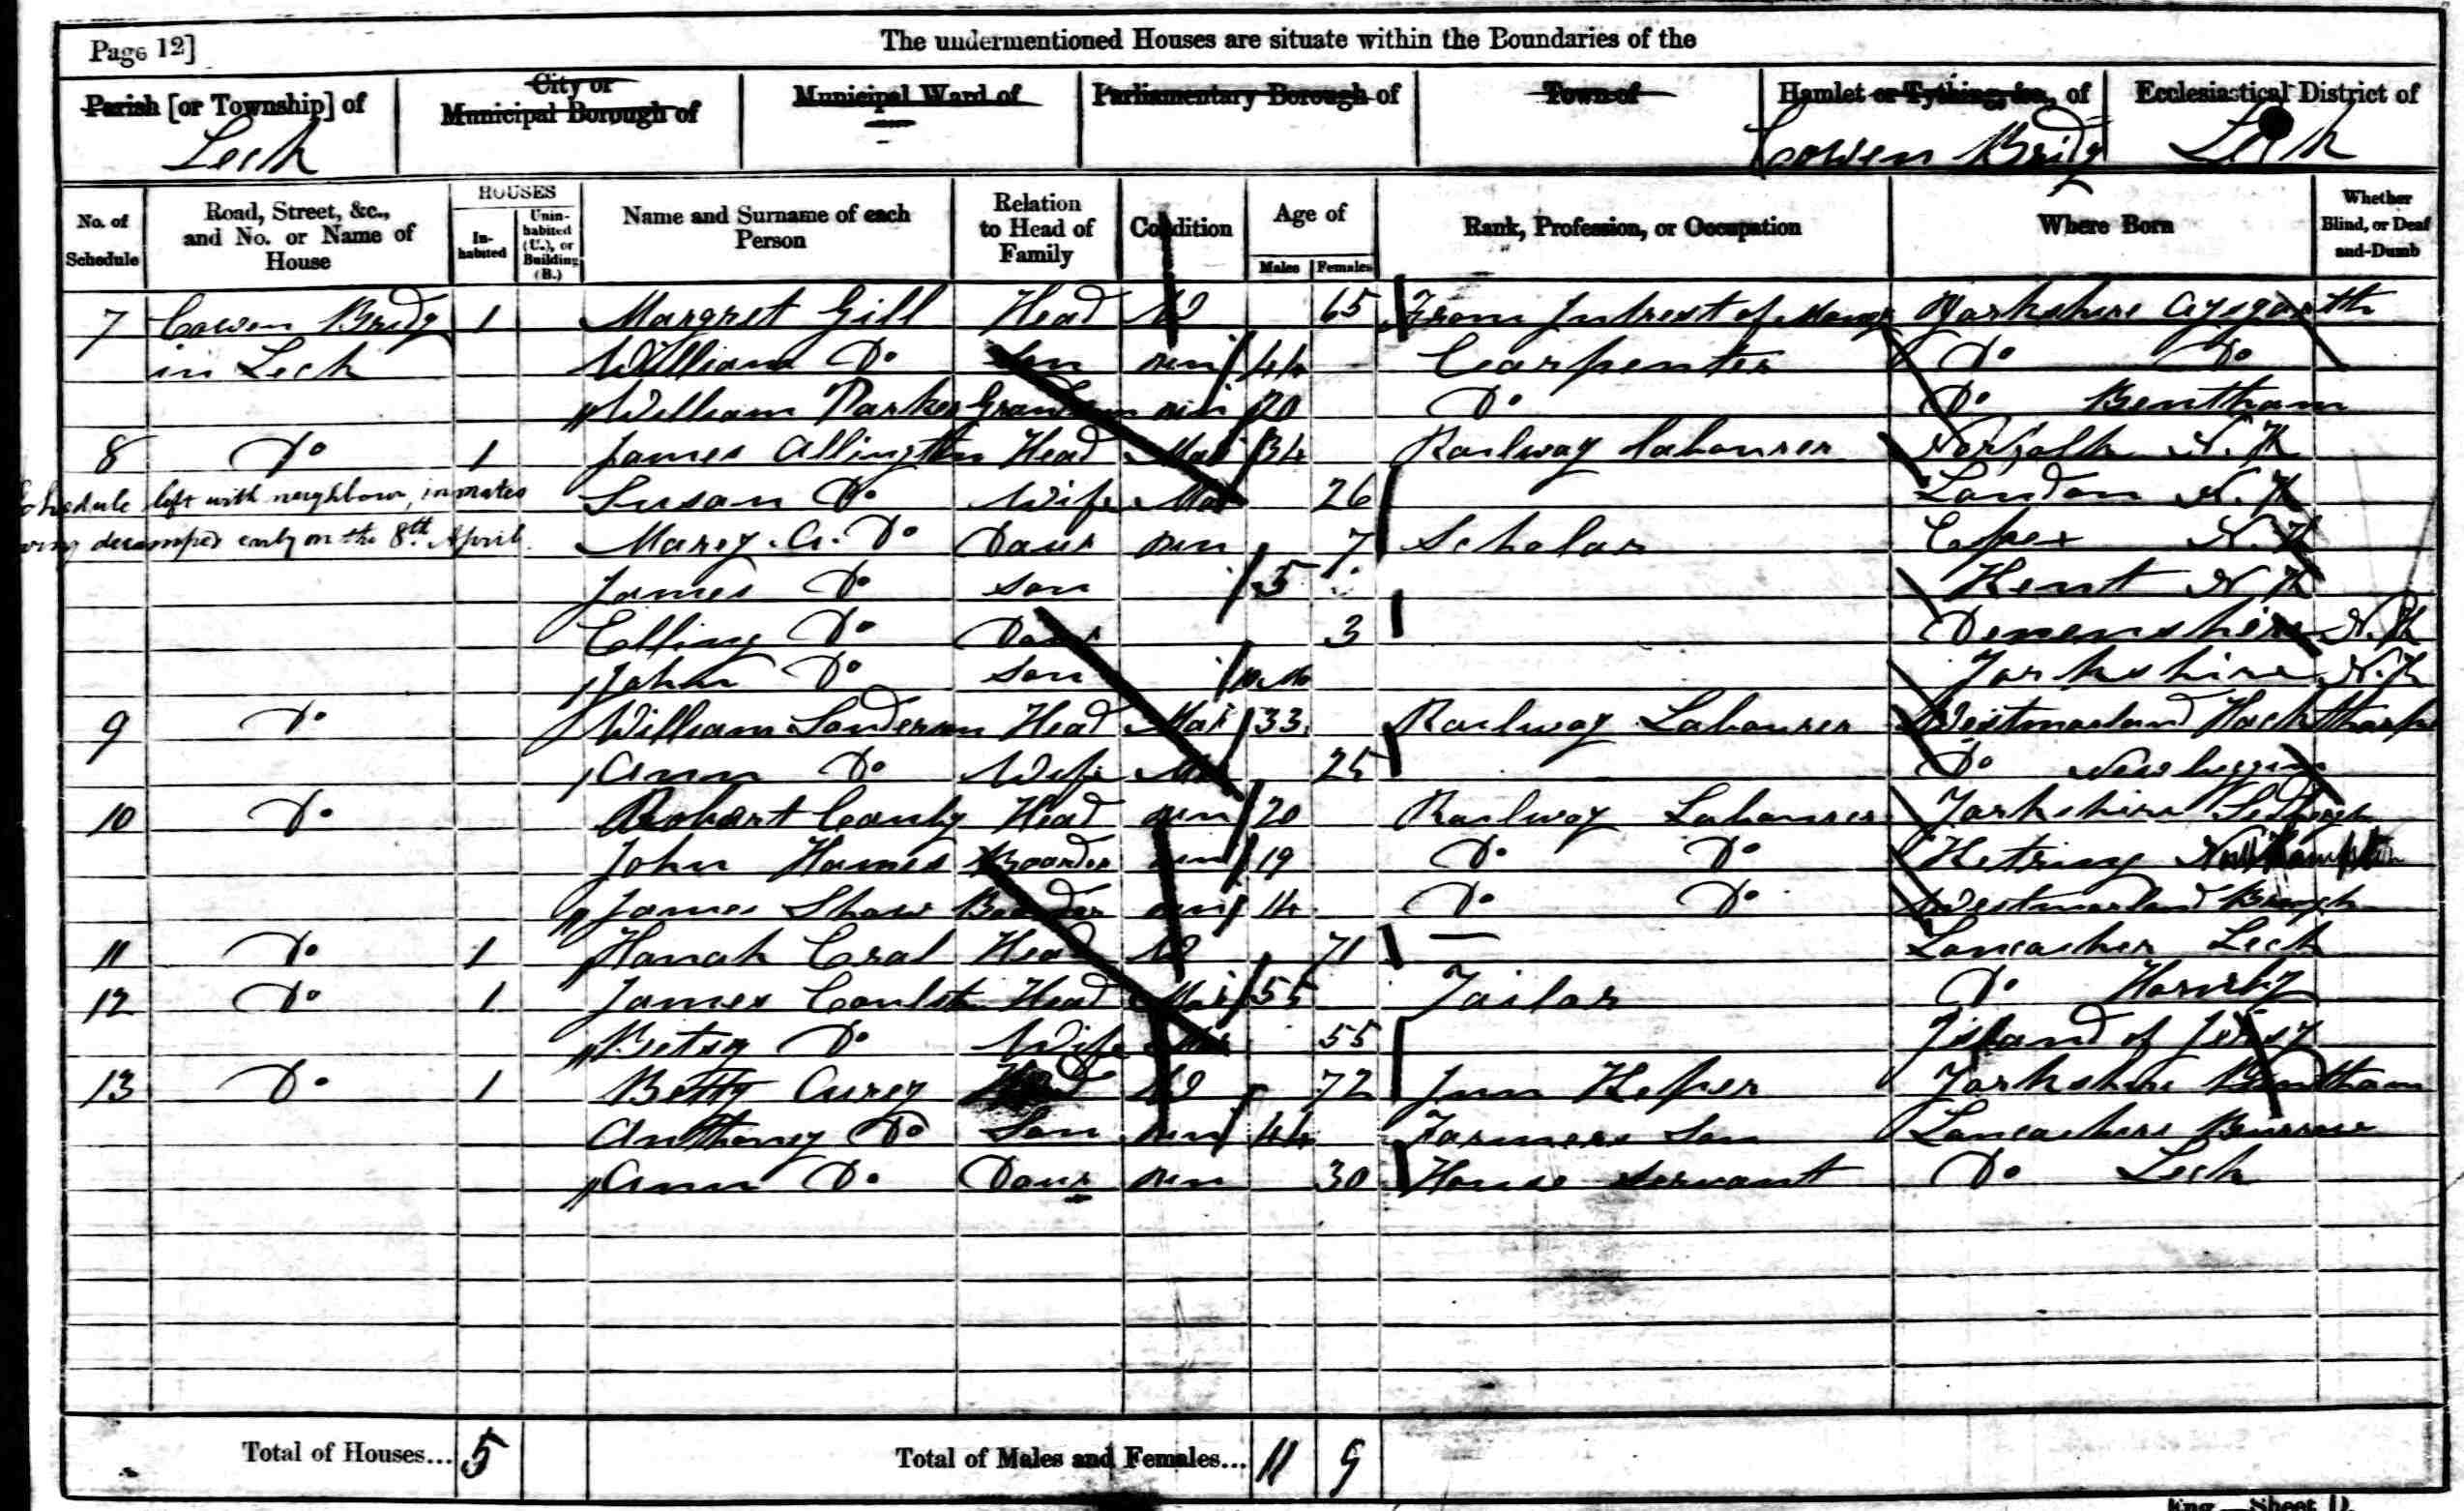 Page 12]
The undermentioned Houses are situate within the Boundaries of the
Parish [or Township] of
City or Municipal Borough of
Municipal Ward of
Parliamentary Borough of
Town of
Hamlet or Tything, &c., of
Ecclesiastical District of
Leck
Cowen Bridg
Leck
No. of Schedule
Road, Street, &c., and No. or Name of House
HOUSES
In-habited
Unin-habited (U.), or Building (B.)
Name and Surname of each Person
Relation to Head of Family
Condition
Age of
Males
Females
Rank, Profession, or Occupation
Where Born
Whether Blind, or Deaf and-Dumb
7 Cowen Bridg 1 Margret Gill Head W 65 From Intrest of Yorkshire Aysgarth
in Leck William Do Son un 44 Carpenter Do Do
William Parker Grandson un 20 Do Do Bentham
8 Do 1 James Allington Head Mar 34 Railway Labourer Norfolk N. K
Schedule left with neighbour, inmates Susan Do Wife Mar 26 London N. K
decamped early on the 8th April. Marey. A. Do Daur un 7 Scholar Essex N. K
James Do Son 5 Kent N K
Elling Do Daur 3 N. K
John Do Son Yorkshire N. K
9 Do William Sanderson Head Mar 33 Railway Labourer Westmorland Hackthorpe
Ann Do Wife Mar 25 Do Newbiggin
10 Do Robert Head un 20 Railway Labourer Yorkshire
John Hames Boarder un 19 Do Do Ketring
James Shaw Boarder un 14 Do Do Westmorland Brough
11 Do 1 Hanah Head W 71 — Lancasher Leck
12 Do 1 James Coulston Head Mar 55 Tailor Do Hornby
Betsy Do Wife Mar 55 Island of Jersy
13 Do 1 Betty Curey Head W 72 Inn Keper Yorkshire Bentham
Anthoney Do Son un 44 Farmers Son Lancashire Burrow
Ann Do Daur un 30 House Servant Do Leck
Total of Houses... 5
Total of Males and Females... 11 9
Eng.—Sheet D.